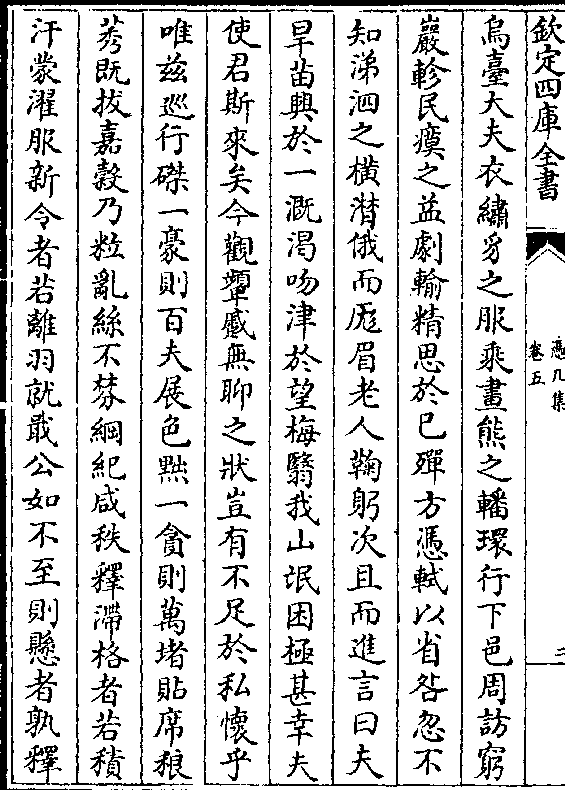 欽定四庫全書
憑几集
卷五
二
烏臺大夫衣繡豸之服乘畫熊之轓環行下邑周訪窮
巖軫民瘼之益劇輸精思於已殫方憑軾以省咎忽不
知涕泗之橫潸俄而厖眉老人鞠躬次且而進言曰夫
旱苗興於一溉渴吻津於望梅翳我山氓困極甚幸夫
使君斯來矣今觀顰蹙無聊之狀豈有不足於私懷乎
唯兹廵行磔一豪則百夫展色黜一貪則萬堵貼席稂
莠既拔嘉穀乃粒亂絲不棼綱紀咸秩釋滯格者若積
汗蒙濯服新令者若離羽就戢公如不至則懸者孰釋